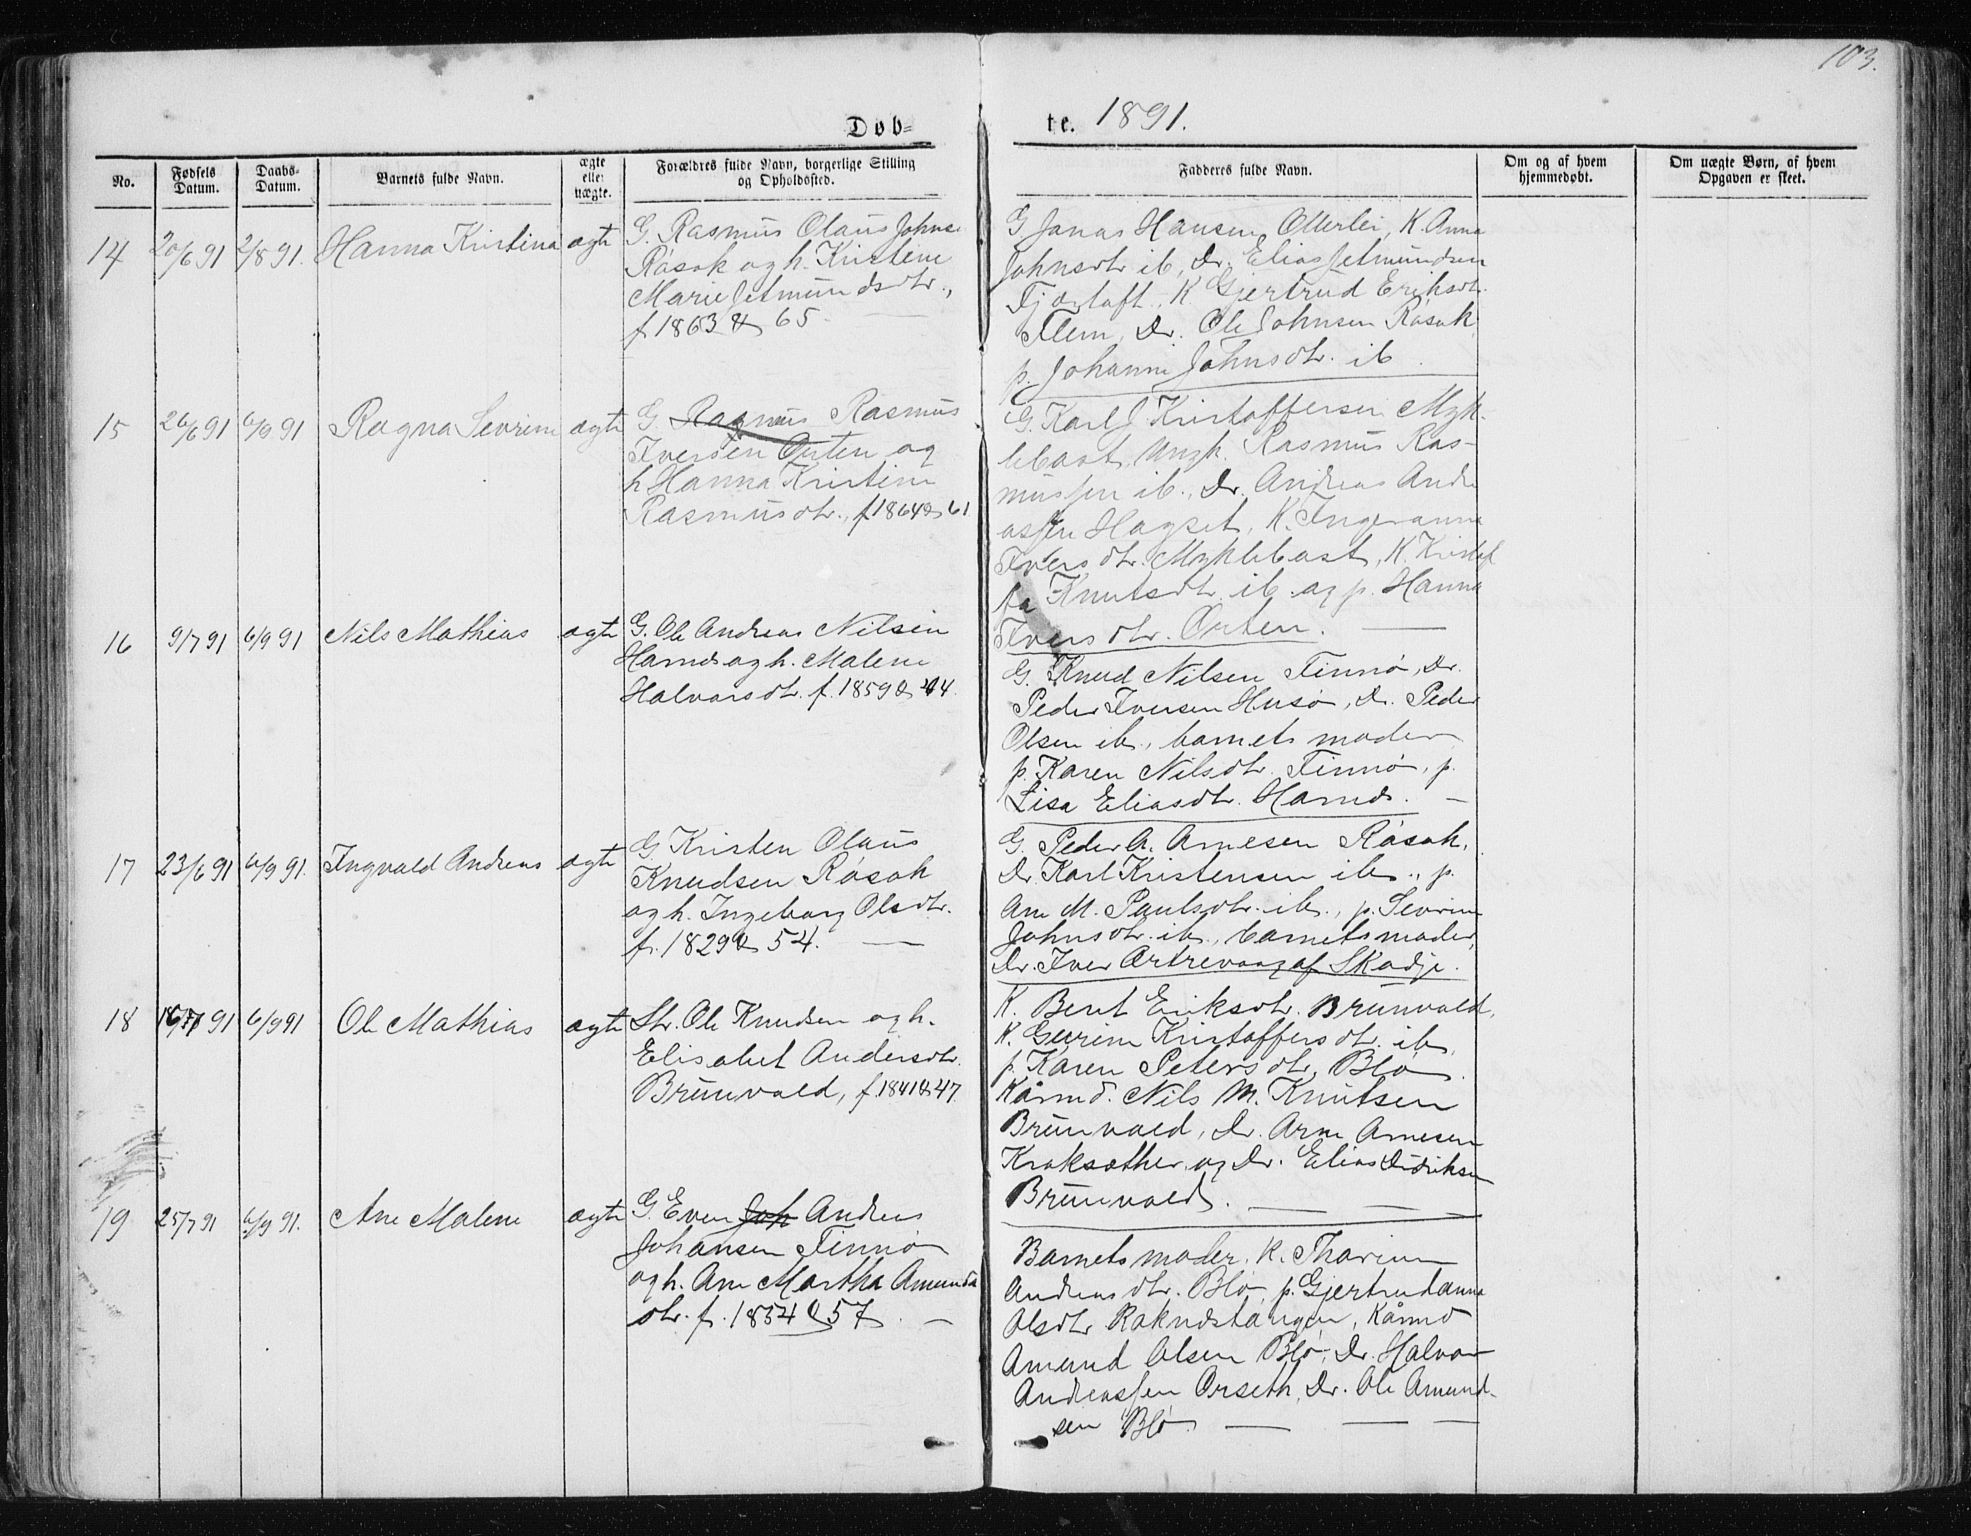 103.
Døb= te. 1891.
No.
Fødsels Datum.
Daabs- Datum.
Barnets fulde Navn.
ægte eller uægte.
Forældres fulde Navn, borgerlige Stilling og Opholdssted.
Fadderes fulde Navn.
Om og af hvem hjemmedøbt.
Om uægte Børn, af hvem Opgaven er skeet.
14 20/6 91 2/8 91. Hanna Kristina ægte
G. Rasmus Olaus Johns.
Røsok og h. Kristine
Marie Jetmundsdtr.,
f 1863 & 65
G Jonas Hansen Otterlei, K. Anna
Johnsdtr ib, Dr. Elias Jetmundsen
Fjørtoft, K Gjertrud Eriksdtr.
Flem, Dr. Ole Johnsen Røsok,
p. Johanne Johnsdtr. ib.
15 26/6 91 6/9 91 Ragna Sevrine ægte
G. Ragnus Rasmus
Iversen Orten og
h Hanna Kristine
Rasmusdtr., f 1864 & 61
G. Karl J Kristoffersen Myk-
lebost, Ungk. Rasmus Ras-
mussen ib., Dr. Andreas Andre
assen Hagset, K. Ingeranna
Iversdtr. Myklebost, K. Kristof
fa Knutsdtr. ib. og p. Hanna
Iversdtr. Orten.
16 9/7 91 6/9 91 Nils Mathias ægte
G. Ole Andreas Nilsen
Harnes og h. Malene
Halvorsdtr. f. 1859 & 44.
G. Knud Nilsen Finnø, Dr.
Peder Iversen Husø, Dr. Peder
Olsen ib., barnets moder
p. Karen Nilsdtr. Finnø, p.
Lisa Eliasdtr. Harnes.
17 23/6 91 6/9 91. Ingvald Andreas ægte
G. Kristen Olaus
Knudsen Røsok
og h. Ingeborg Olsdtr.
f. 1829 & 54.
G. Peder A. Arnesen Røsok,
Dr. Karl Kristensen ib., p.
Ane M. Paulsdtr. ib., p. Sevrine
Johnsdtr. ib., barnets moder,
Dr. Iver Ørtrevaag af Skodje.
18 91 6/9 91 Ole Mathias ægte
Str. Ole Knudsen og h.
Elisabet Andersdtr.
Brunvold, f. 1841 & 47.
K. Berit Eriksdtr. Brunvold,
K. Gurine Kristoffersdtr. ib
p. Karen Petersdtr, Blø
Kårmd. Nils M. Knutsen
Brunvold, Dr. Arne Arnesen
Kroksæther og Dr. Elias Didriksen
Brunvold.
19 25/7 91 6/9 91. Ane Malene ægte
G. Even Joh Andreas
Johansen Finnø
og h. Ane Martha Amunds
dtr. f. 1854 & 57.
Barnets moder, K. Thorine
Andreasdtr. Blø, p. Gjertrudanna
Olsdtr Rakndstangen, Kårmd
Amund Olsen Blø, Dr. Halvor
Andreassen Orseth, Dr. Ole Amund-
sen Blø